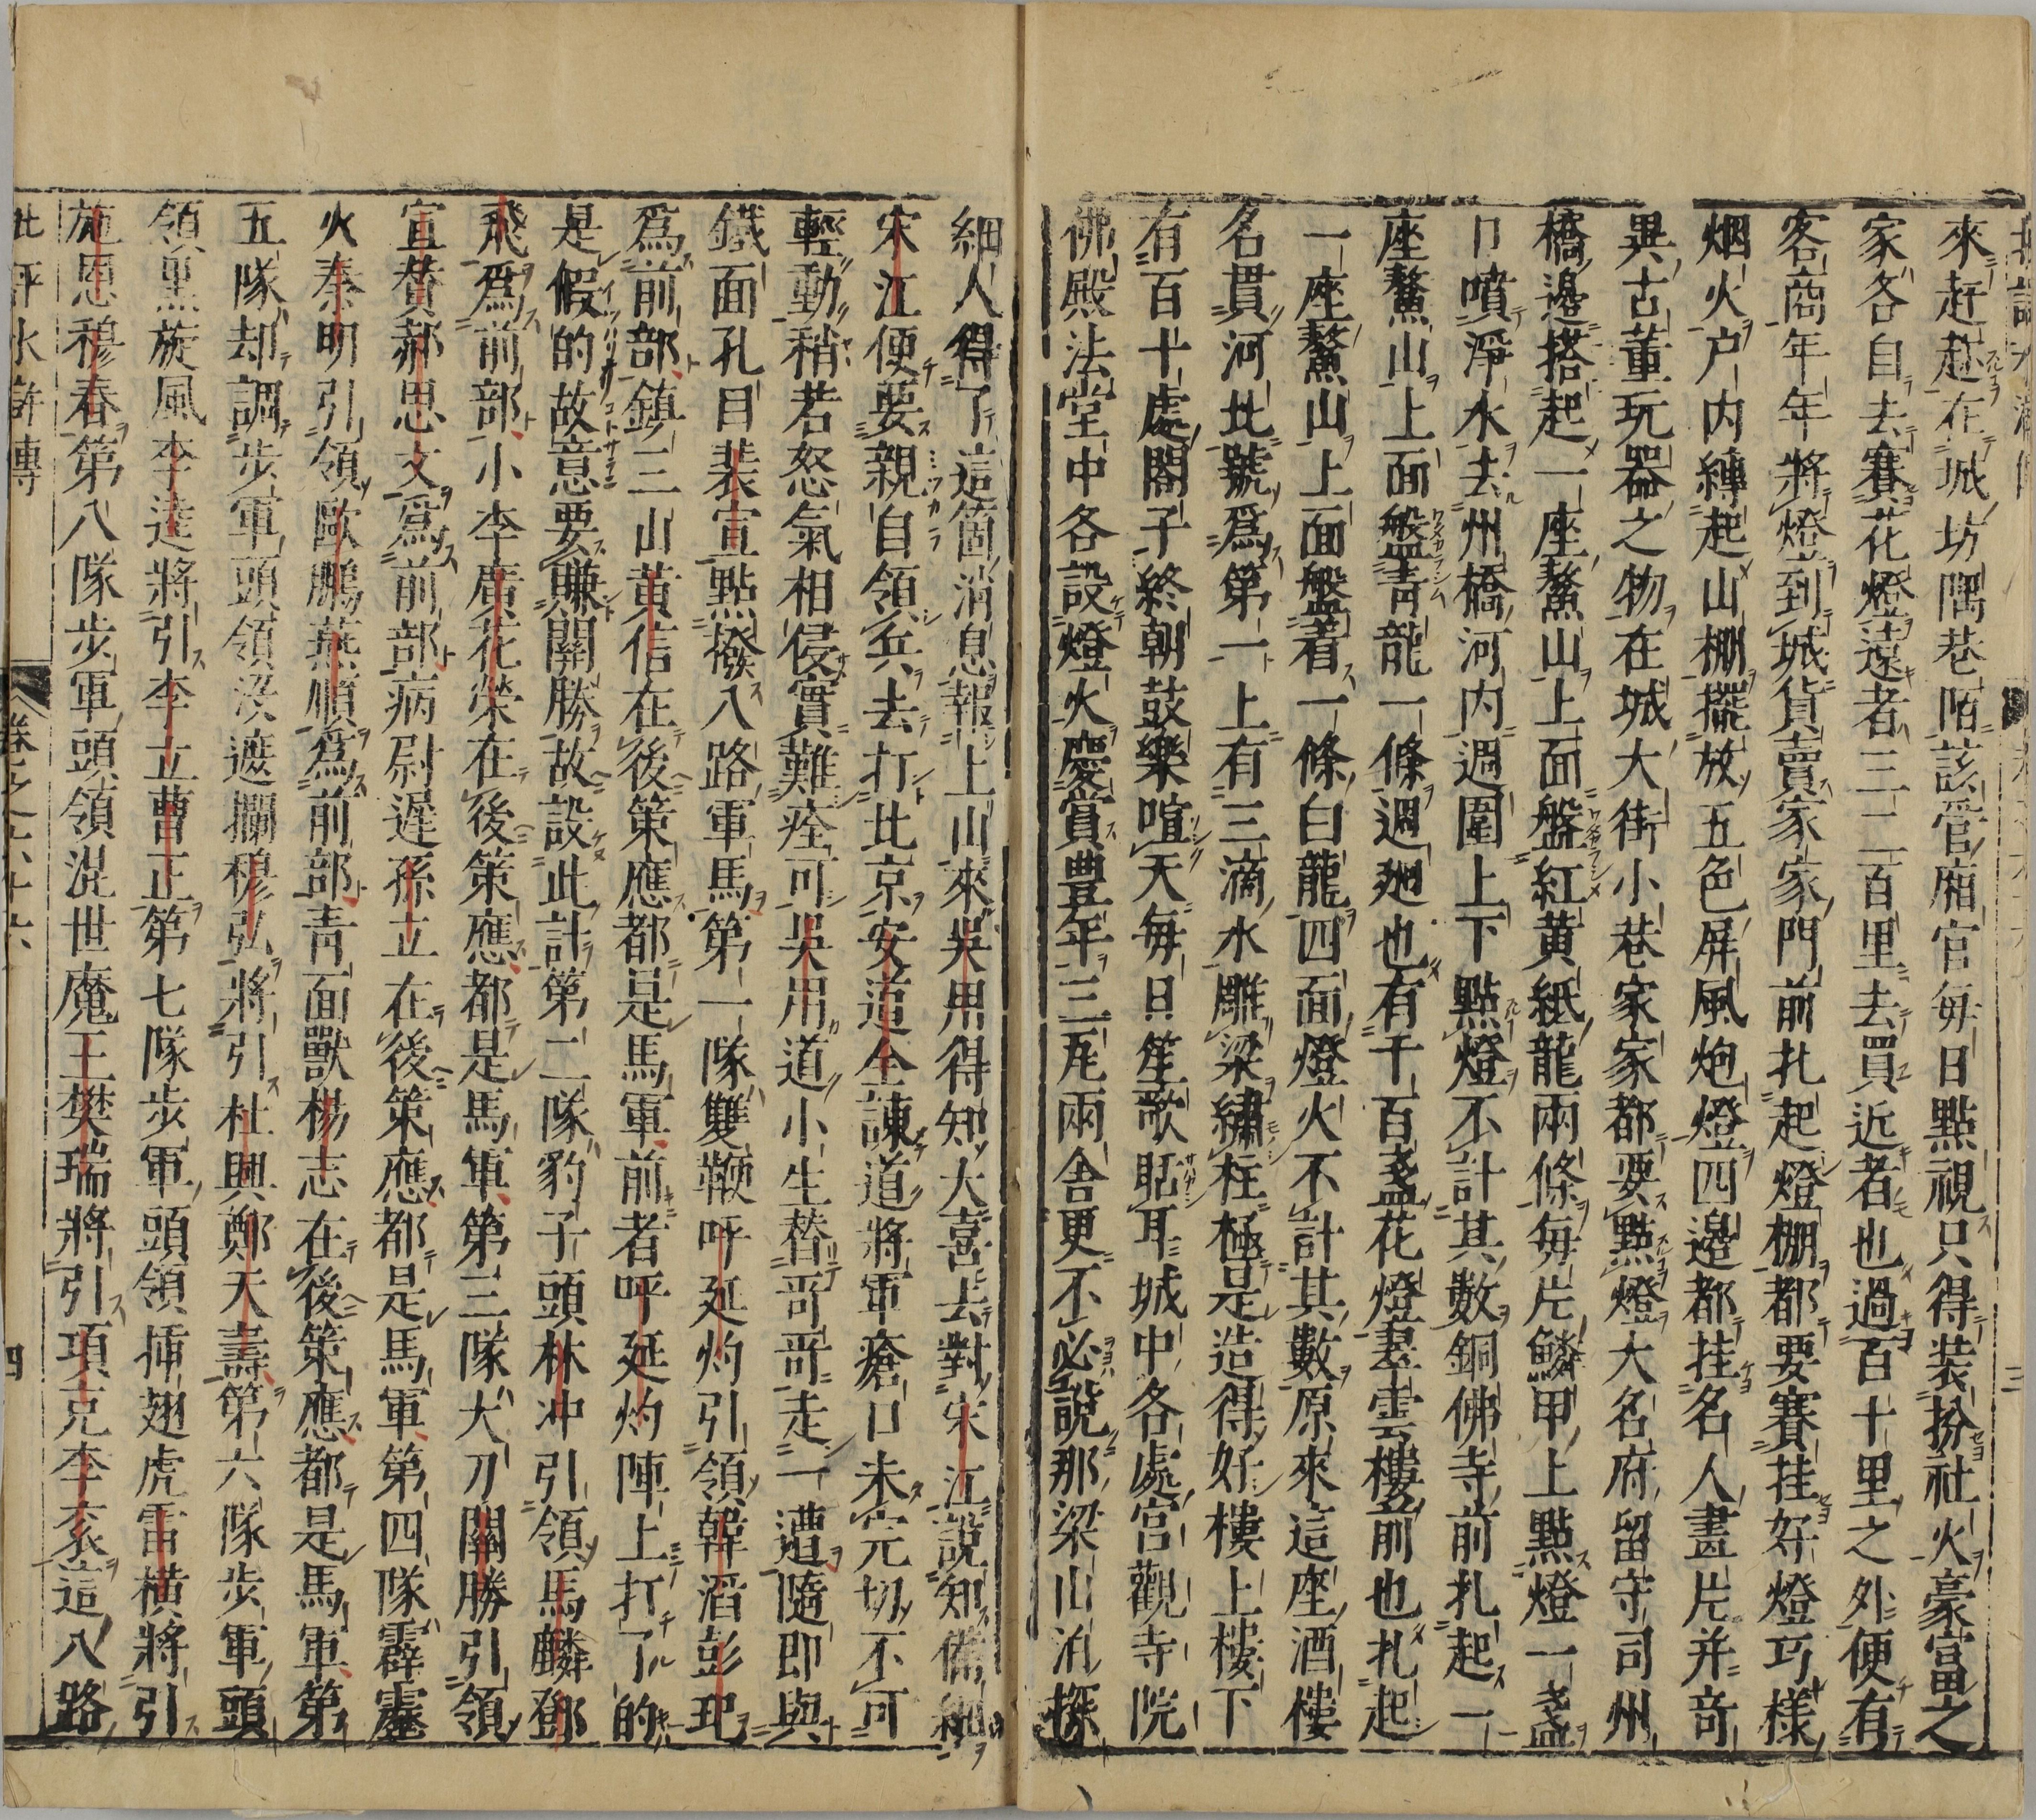 來赶趂在城坊隅巷陌該管廂官每日點視只得装扮社火豪富之
家各自去賽花燈遠者三二百里去買近者也過百十里之外便有
客商年年將燈到城貨賣家家門前扎起燈棚都要賽挂好燈巧樣
烟火户内縛起山棚擺放五色屏風炮燈四邉都挂名人畫片并竒
異古董玩器之物在城大街小巷家家都要點燈大名府留守司州
橋邉搭起一座鰲山上面盤紅黄紙龍兩條每片鱗甲上點燈一盞
口噴淨水去州橋河内週圍上下點燈不計其數銅佛寺前扎起一
座鰲山上面盤青龍一條週廻也有千百盞花燈翠雲樓前也扎起
一座鰲山上面盤着一條白龍四面燈火不計其數原來這座酒樓
名貫河北號爲第一上有三滴水雕梁繡柱極是造得好樓上樓下
有百十處閣子終朝鼓樂喧天每日笙歌聒耳城中各處宫觀寺院
佛殿法堂中各設燈火慶賞豊年三瓦兩舎更不必説那梁山泊探
細人得了這箇消息報上山來吳用得知大喜去對宋江説知備細
宋江便要親自領兵去打北京安道全諫道將軍瘡口未完切不可
輕動稍若怒氣相侵實難痊可吳用道小生替哥哥走一遭隨即與
鐵面孔目裴宣點撥八路軍馬第一隊雙鞭呼延灼引領韓滔彭玘
爲前部鎮三山黄信在後策應都是馬軍前者呼延灼陣上打了的
是假的故意要賺關勝故設此計第二隊豹子頭林冲引領馬麟鄧
飛爲前部小李廣花榮在後策應都是馬軍第三隊大刀關勝引領
宣贊郝思文爲前部病尉遲孫立在後策應都是馬軍第四隊霹靂
火秦明引領歐鵬燕順爲前部青面獸楊志在後策應都是馬軍第
五隊却調步軍頭領没遮攔穆弘將引杜興鄭天壽第六隊步軍頭
領黒旋風李逵將引李立曹正第七隊步軍頭領插翅虎雷横將引
施恩穆春第八隊步軍頭領混世魔王樊瑞將引項充李衮這八路